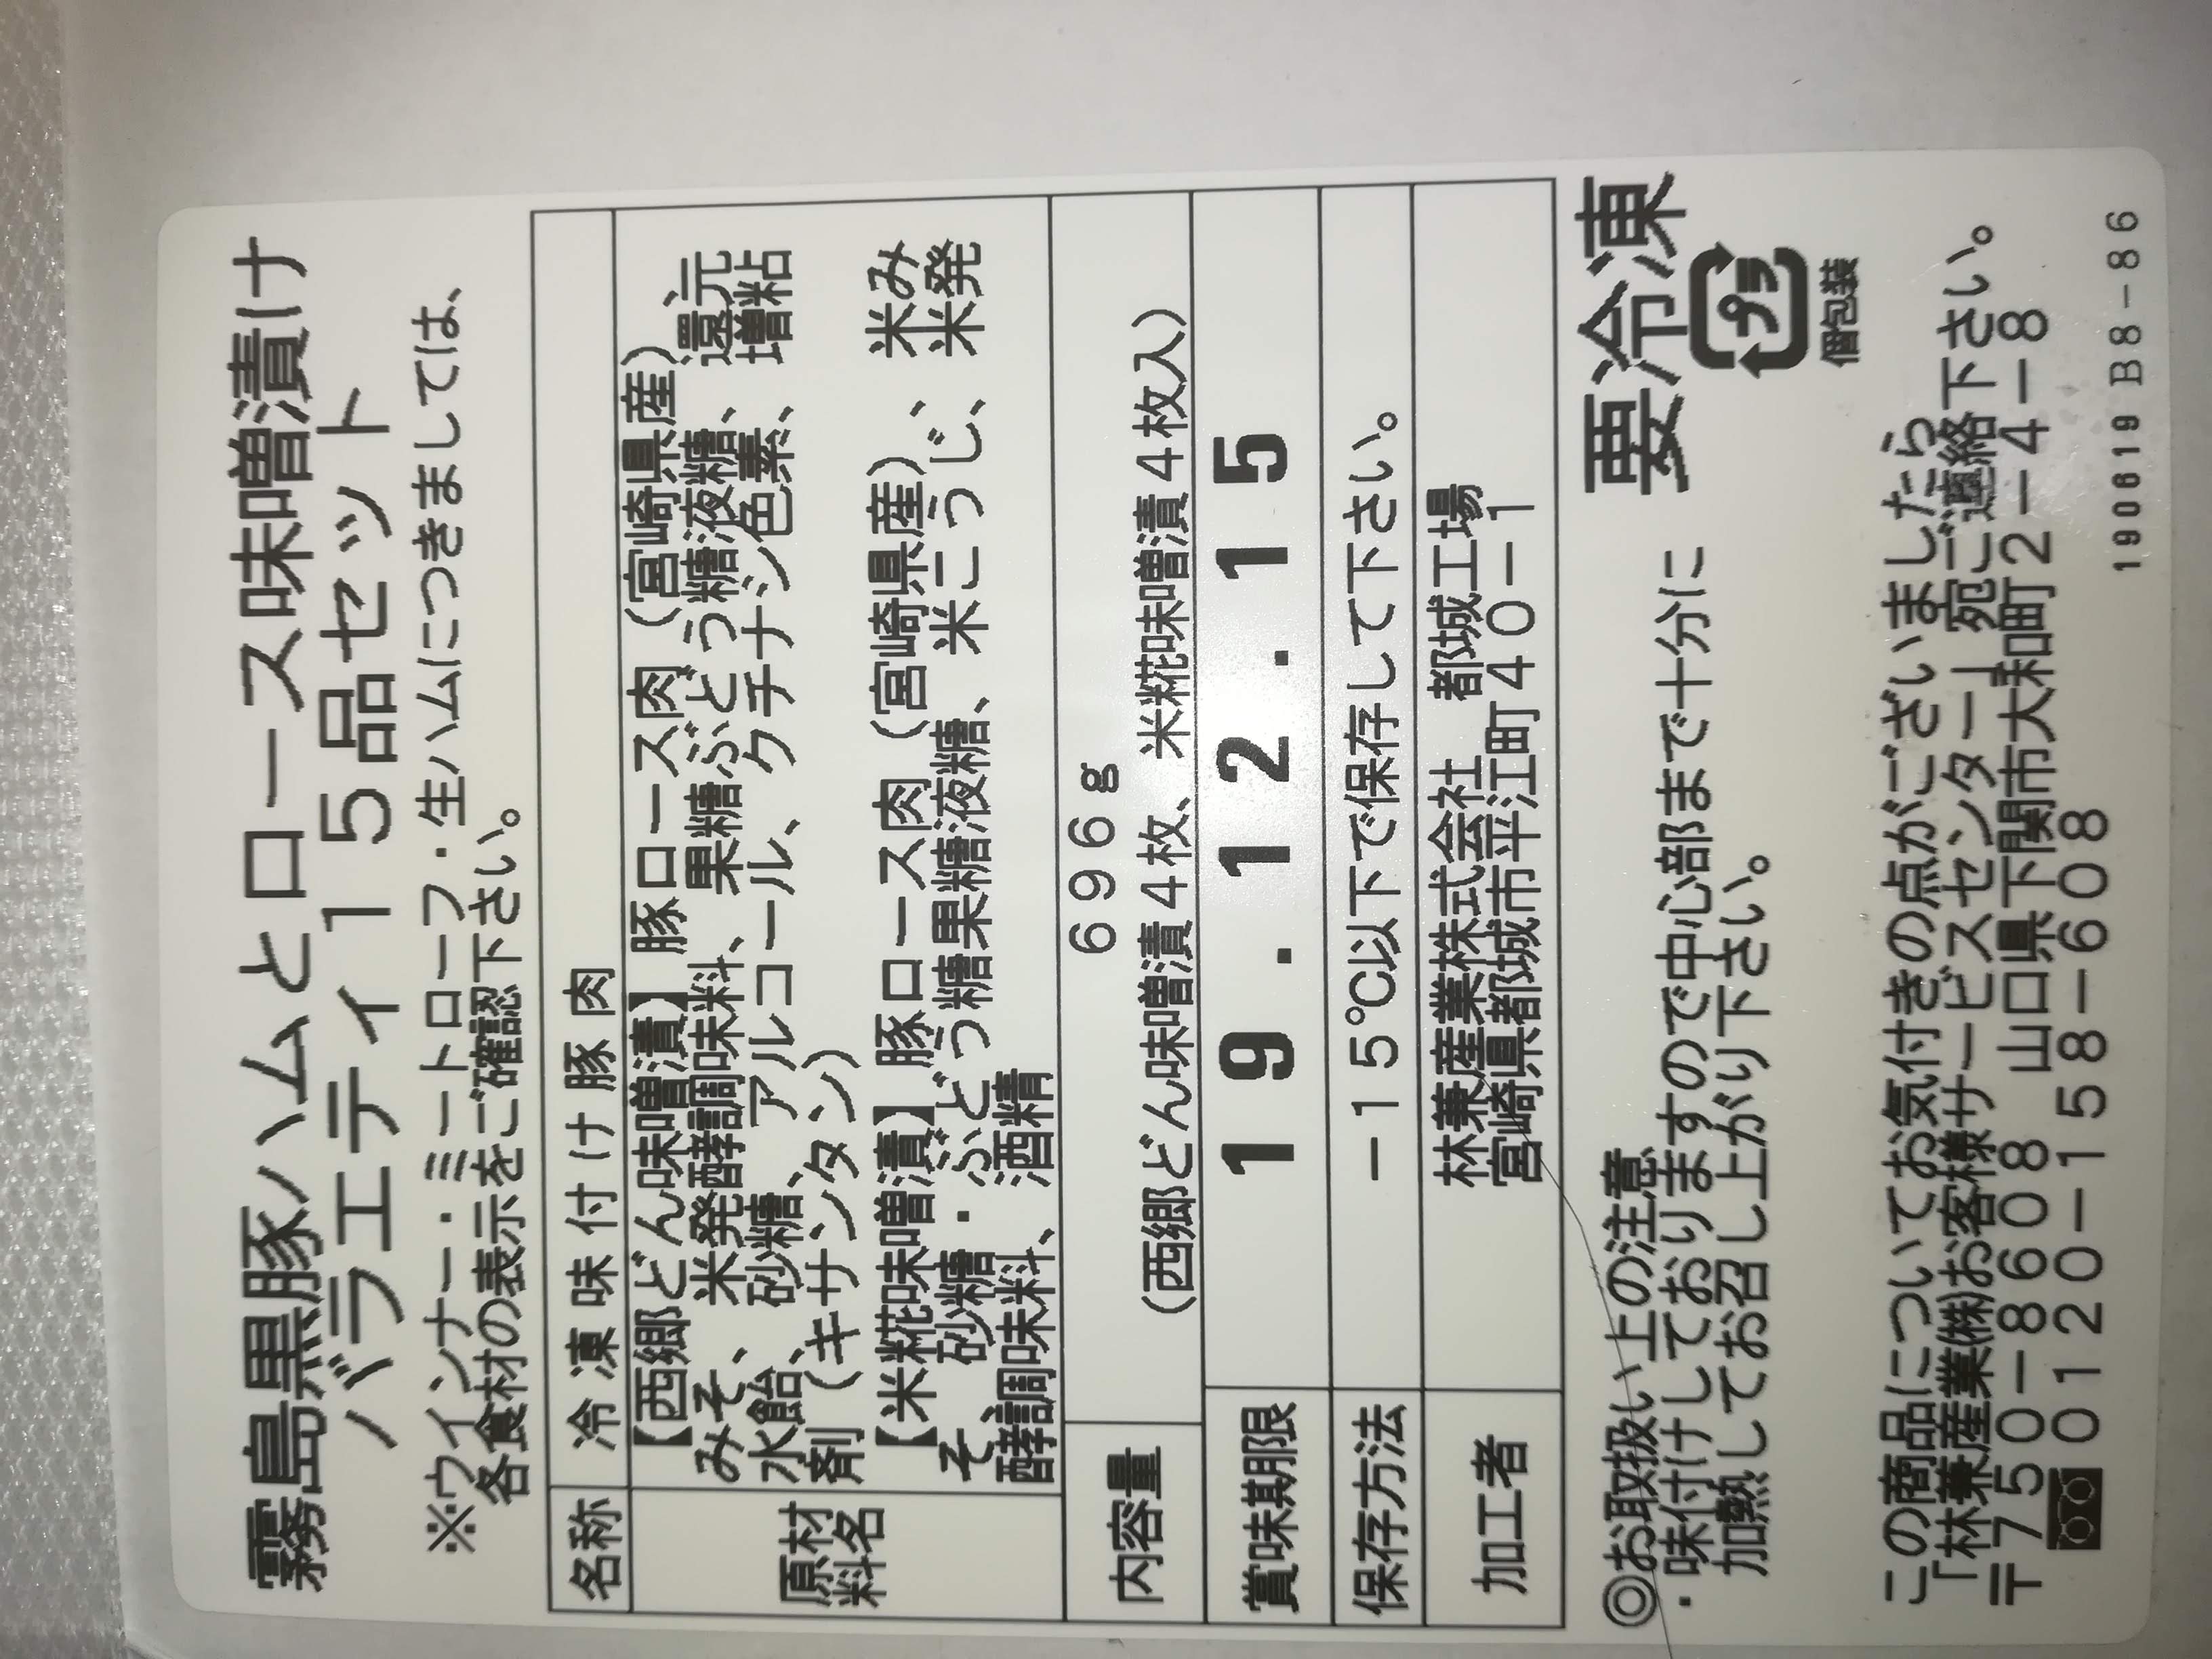 霧島黒豚ハムとロース味噌漬け
バラエティ１５品セット
※ウインナー・ミートローフ・生ハムにつきましては、
各食材の表示をご確認下さい。
名称 冷凍味付け豚肉
原材料名
【西郷どん味噌漬】豚ロース肉（宮崎県産）、
みそ、米発酵調味料、果糖ぶどう糖液糖、還元
水飴、砂糖、アルコール、クチナシ色素、増粘
剤（キサンタン）
【米糀味噌漬】豚ロース肉（宮崎県産）、米み
そ、砂糖・ぶどう糖果糖液糖、米こうじ、米発
酵調味料、酒精
内容量 ６９６ｇ
（西郷どん味噌漬４枚、米糀味噌漬４枚入）
賞味期限 19.12.15
保存方法 －１５℃以下で保存して下さい。
加工者 林兼産業株式会社　都城工場
宮崎県都城市平江町４０－１
◎お取扱い上の注意
・味付けしておりますので中心部まで十分に
加熱してお召し上がり下さい。
要冷凍
プラ
個包装
この商品についてお気付きの点がございましたら
「林兼産業㈱お客様サービスセンター」宛ご連絡下さい。
〒７５０－８６０８　山口県下関市大和町２－４－８
０１２０－１５８－６０８
190619 B8-86